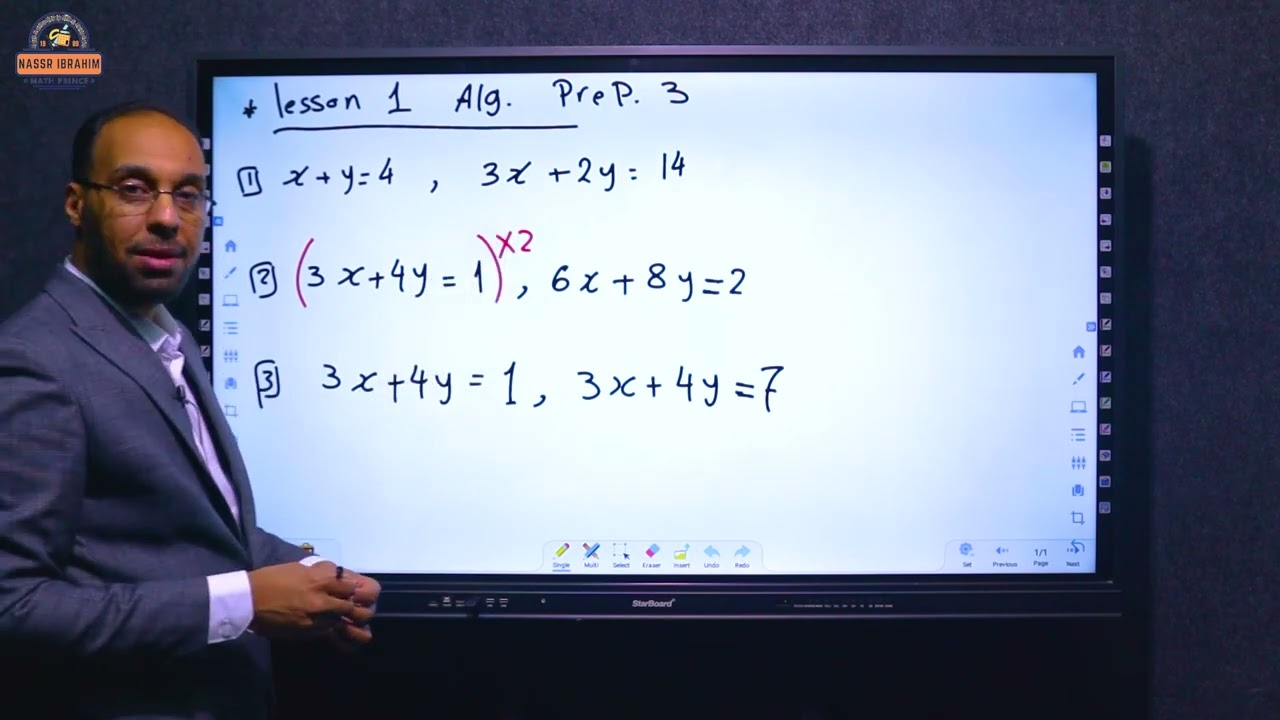 NASSR IBRAHIM
MATH PRINCE
* lesson 1 Alg. PreP. 3
1 x + y = 4 , 3x + 2y = 14
2 (3x + 4y = 1)×2 , 6x + 8y = 2
3 3x + 4y = 1 , 3x + 4y = 7
Single Multi Select Eraser Insert Undo Redo
Set Previous 1/1 Page Next
StarBoard